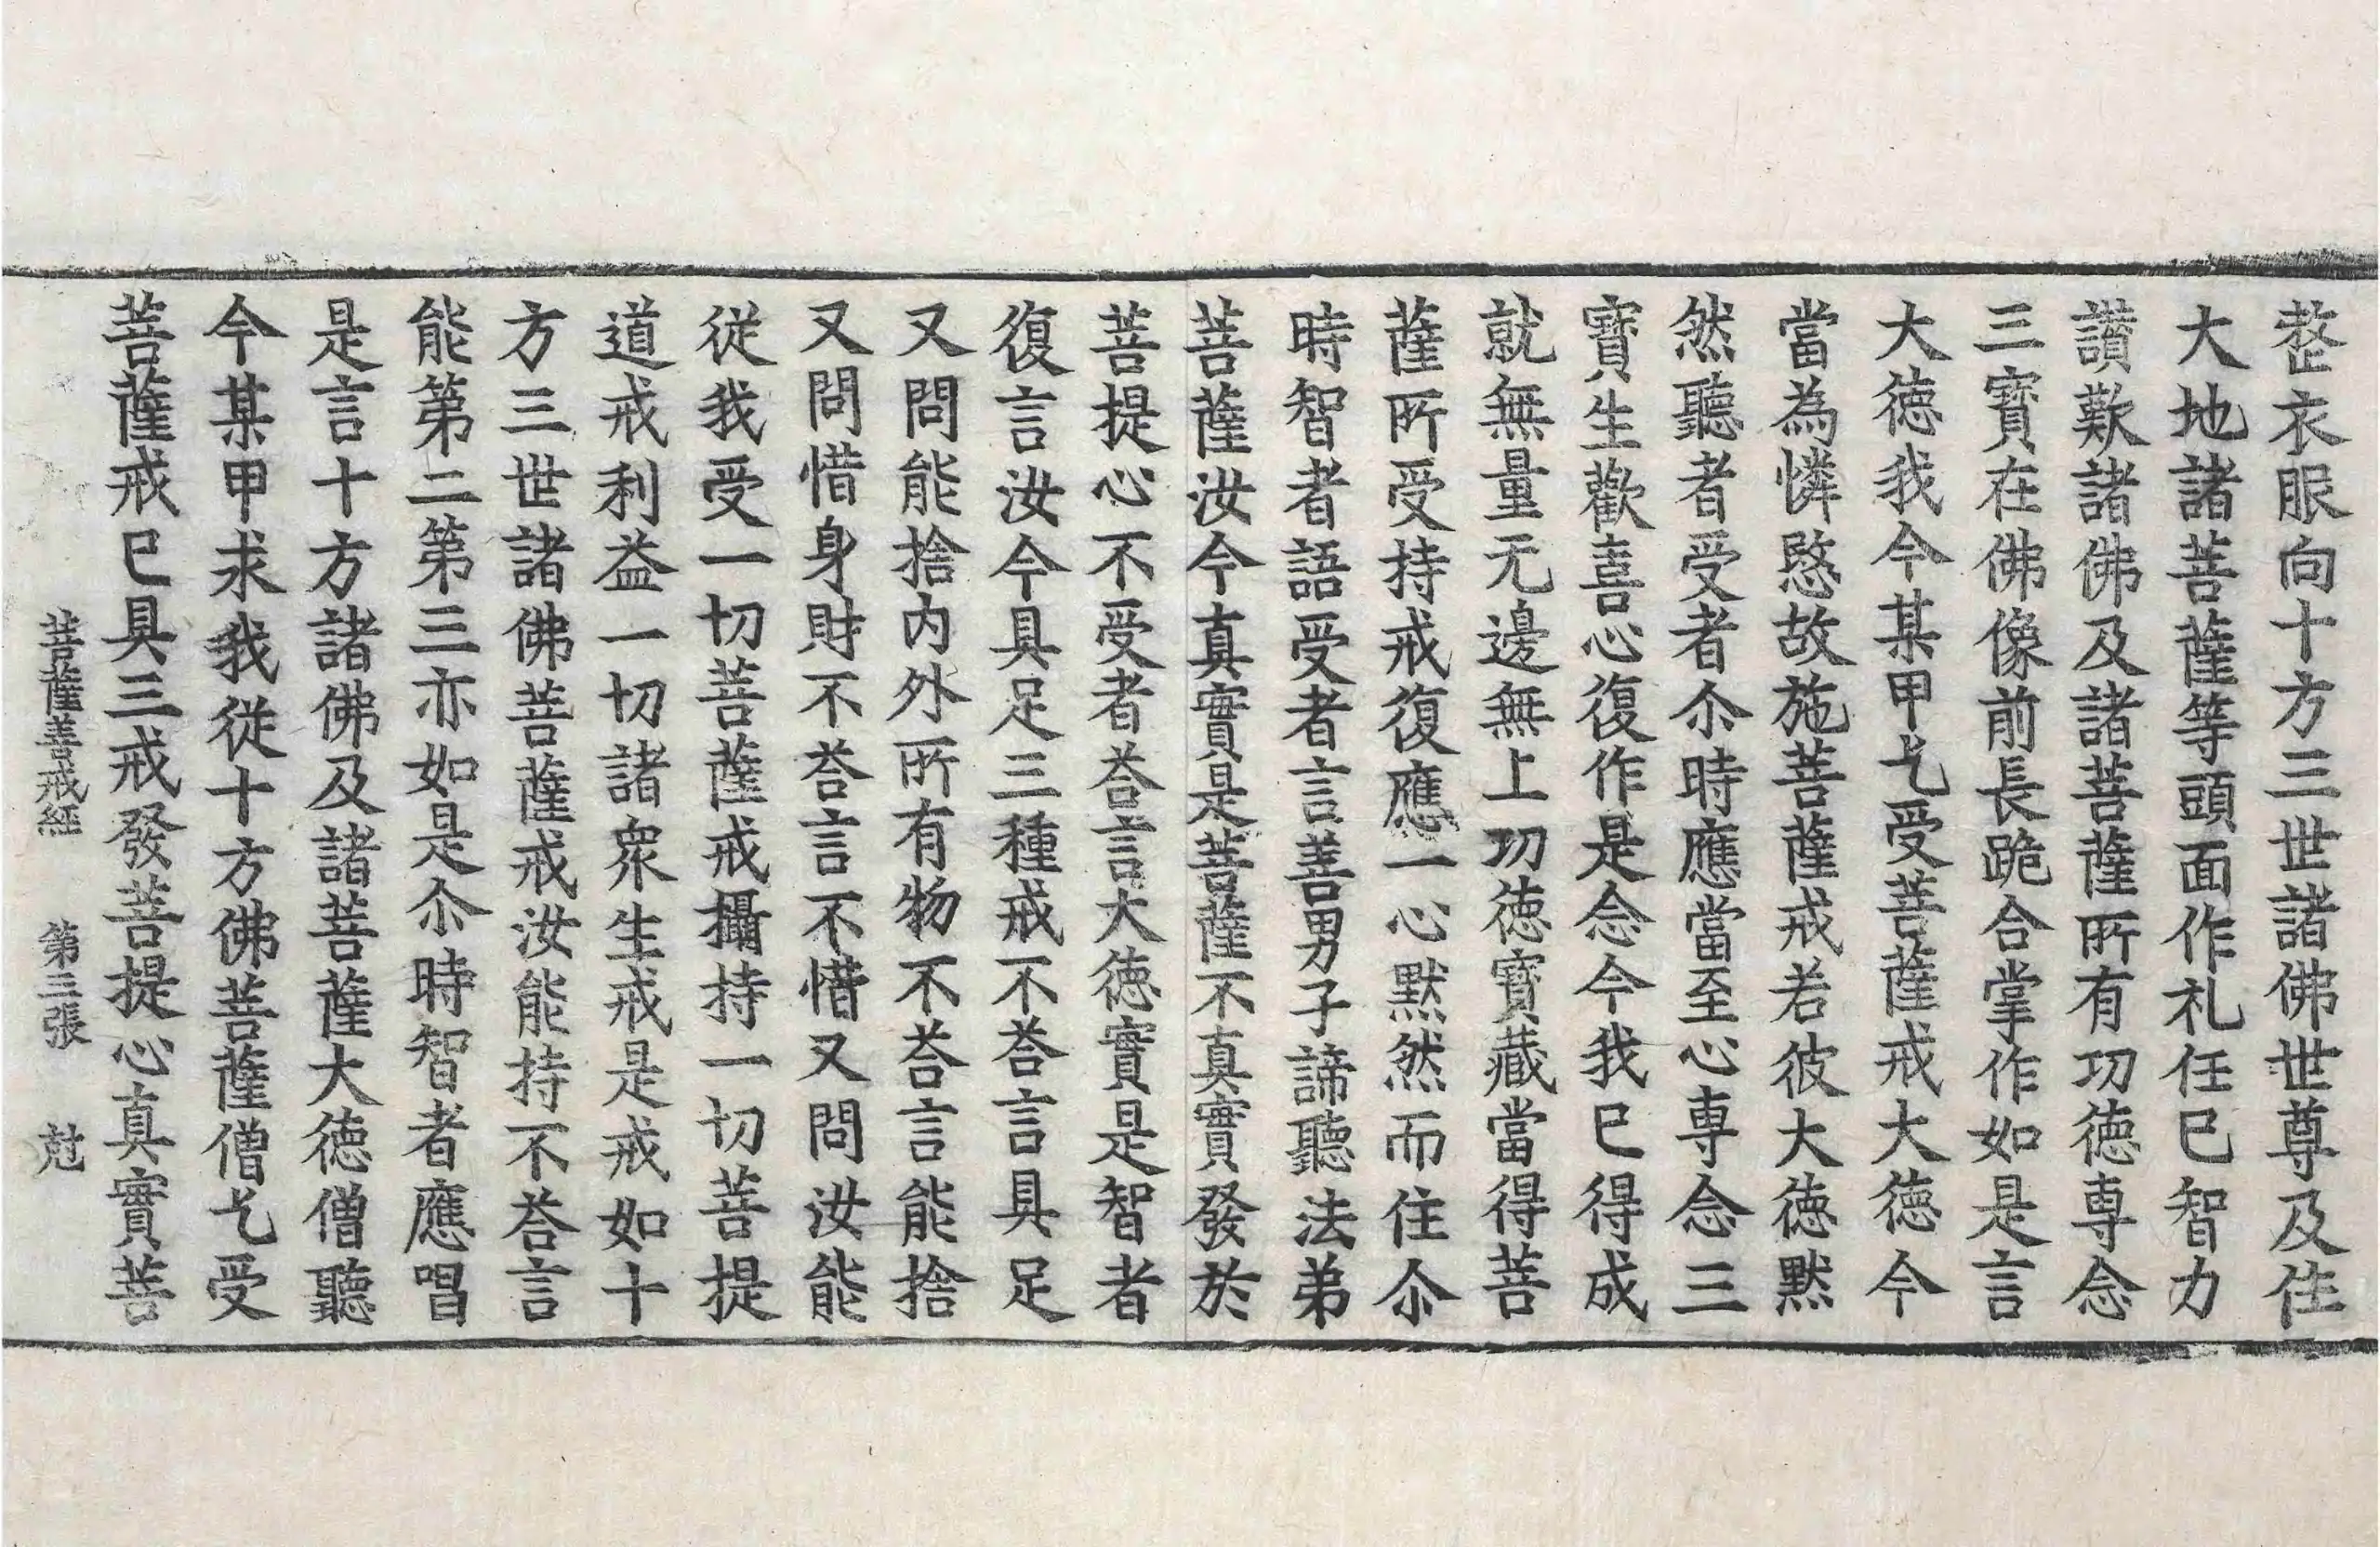 整衣服向十方三世諸佛世尊及住
大地諸菩薩等頭面作礼任已智力
讃歎諸佛及諸菩薩所有功徳専念
三寶在佛像前長跪合掌作如是言
大徳我今某甲乞受菩薩戒大徳今
當為憐愍故施菩薩戒若彼大徳黙
然聽者受者尒時應當至心専念三
寶生歡喜心復作是念今我已得成
就無量无邊無上功徳寶藏當得菩
薩所受持戒復應一心黙然而住尒
時智者語受者言善男子諦聽法弟
菩薩汝今真實是菩薩不真實發於
菩提心不受者荅言大徳實是智者
復言汝今具足三種戒不荅言具足
又問能捨内外所有物不荅言能捨
又問惜身財不荅言不惜又問汝能
従我受一切菩薩戒攝持一切菩提
道戒利益一切諸衆生戒是戒如十
方三世諸佛菩薩戒汝能持不荅言
能第二第三亦如是尒時智者應唱
是言十方諸佛及諸菩薩大徳僧聽
今某甲求我従十方佛菩薩僧乞受
菩薩戒已具三戒發菩提心真實菩
菩薩善戒経 第三張 尅